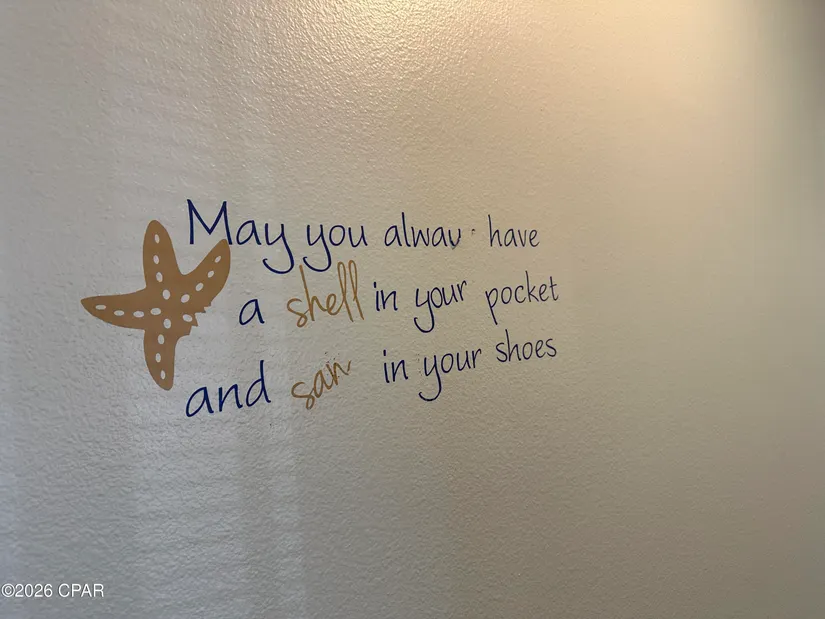 May you alway have
a shell in your pocket
and san in your shoes
©2026 CPAR